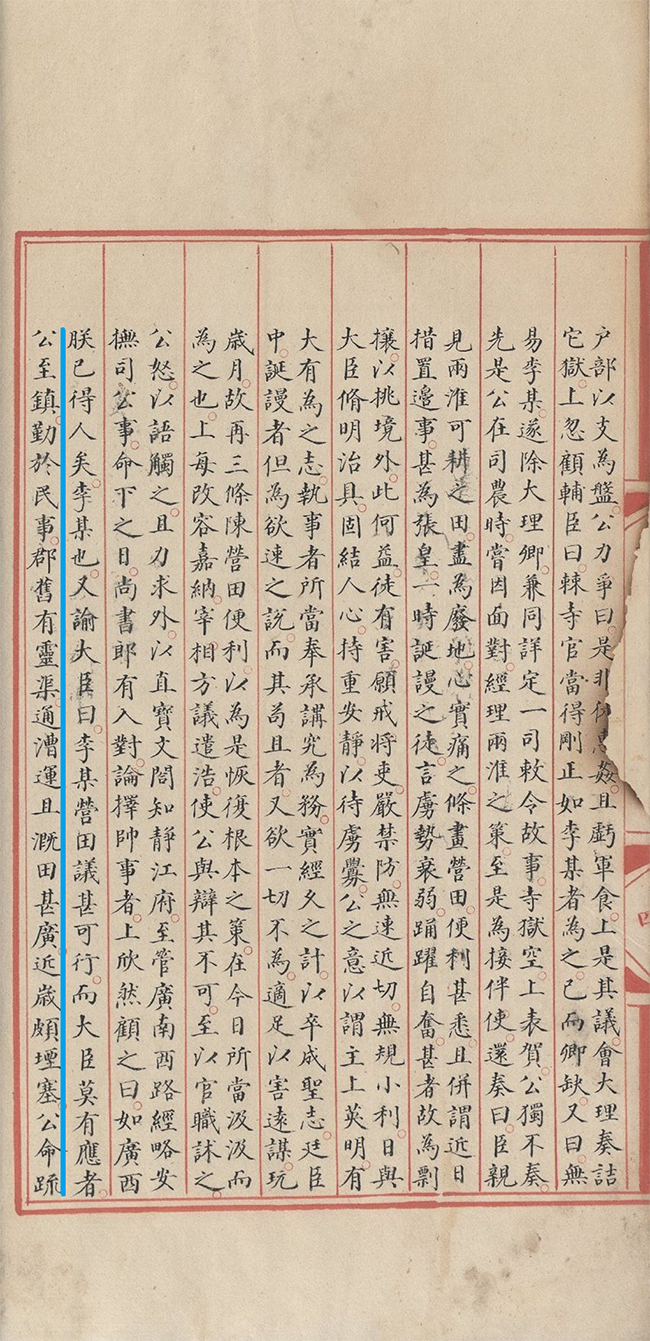 户部以支為盤公力爭曰是非優姦且虧軍食上是其議會大理奏詰
它獄上忽顧輔臣曰棘寺官當得剛正如李某者為之已而卿缺又曰無
易李某遂除大理卿兼同詳定一司敕令故事寺獄空上表賀公獨不奏
先是公在司農時嘗因面對經理兩淮之策至是為接伴使還奏曰臣親
見兩淮可耕之田盡為廢地心實痛之條畫營田便利甚悉且併謂近日
措置邊事甚為張皇一時誕謾之徒言虜勢衰弱踊躍自奮甚者故為剽
攘以挑境外此何益徒有害願戒將吏嚴禁防無速近切無規小利日與
大臣脩明治具固結人心持重安靜以待虜釁公之意以謂主上英明有
大有為之志執事者所當奉承講究為務實經久之計以卒成聖志廷臣
中誕謾者但為欲速之說而其苟且者又欲一切不為適足以害遠謀玩
歲月故再三條陳營田便利以為是恢復根本之策在今日所當汲汲而
為之也上每改容嘉納宰相方議遣浩使公與辯其不可至以官職訹之
公怒以語觸之且力求外以直寶文閣知靜江府至管廣南西路經略安
撫司公事命下之日尚書郎有入對論擇帥事者上欣然顧之曰如廣西
朕已得人矣李某也又諭大臣曰李某營田議甚可行而大臣莫有應者
公至鎮勤於民事郡舊有靈渠通漕運且溉田甚廣近歲頗堙塞公命疏